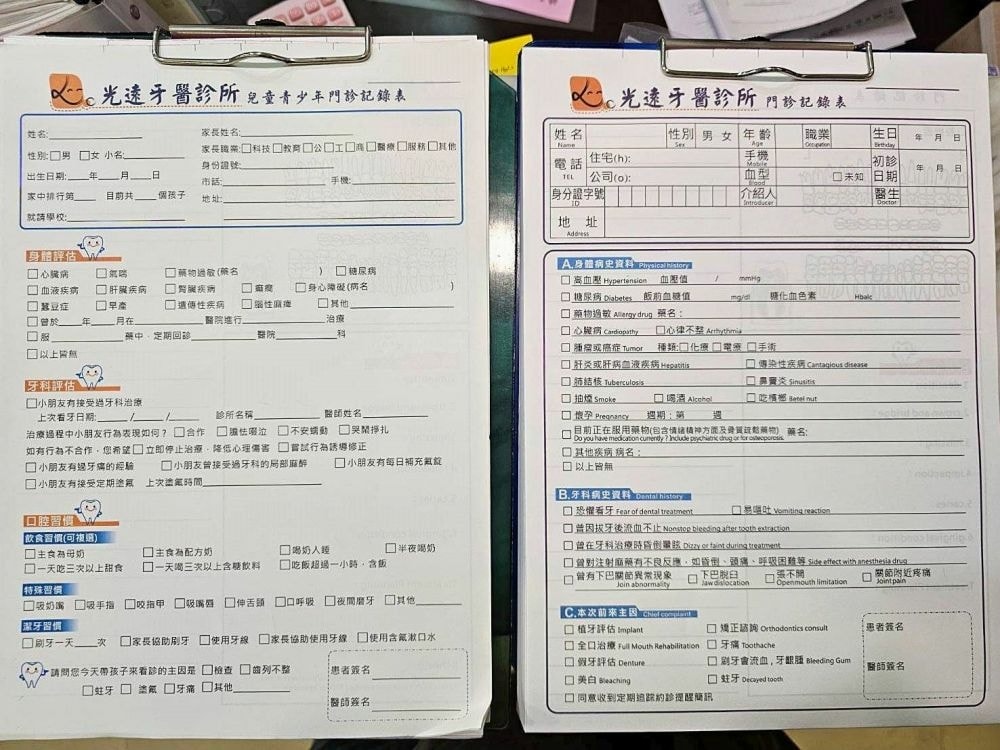 光遠牙醫診所 兒童青少年門診記錄表
姓名:
家長姓名:
性別:□男 □女 小名:
家長職業:□科技 □教育 □公 □工 □商 □醫療 □服務 □其他
出生日期: 年 月 日
身份證號:
市話: 手機:
家中排行第 目前共 個孩子
地址:
就讀學校:
身體評估
□心臟病 □氣喘 □藥物過敏(藥名 ) □糖尿病
□血液疾病 □肝臟疾病 □腎臟疾病 □癲癇 □身心障礙(病名 )
□蠶豆症 □早產 □遺傳性疾病 □腦性麻痺 □其他
□曾於 年 月在 醫院進行 治療
□服 藥中,定期回診 醫院 科
□以上皆無
牙科評估
□小朋友有接受過牙科治療
上次看牙日期: / / 診所名稱 醫師姓名
治療過程中小朋友行為表現如何?□合作 □膽怯啜泣 □不安蠕動 □哭鬧掙扎
如有行為不合作,您希望□立即停止治療,降低心理傷害 □嘗試行為誘導修正
□小朋友有過牙痛的經驗 □小朋友曾接受過牙科的局部麻醉 □小朋友有每日補充氟錠
□小朋友有接受定期塗氟 上次塗氟時間
口腔習慣
飲食習慣(可複選)
□主食為母奶 □主食為配方奶 □喝奶入睡 □半夜喝奶
□一天吃三次以上甜食 □一天喝三次以上含糖飲料 □吃飯超過一小時,含飯
特殊習慣
□吸奶嘴 □吸手指 □咬指甲 □吸嘴唇 □伸舌頭 □口呼吸 □夜間磨牙 □其他
潔牙習慣
□刷牙一天 次 □家長協助刷牙 □使用牙線 □家長協助使用牙線 □使用含氟漱口水
請問您今天帶孩子來看診的主因是 □檢查 □齒列不整
□蛀牙 □塗氟 □牙痛 □其他
患者簽名
醫師簽名
光遠牙醫診所 門診記錄表
姓名 Name 性別 Sex 男 女 年齡 Age 職業 Occupation 生日 Birthday 年 月 日
電話 TEL 住宅(h): 手機 Mobile 初診日期 年 月 日
公司(o): 血型 Blood □未知
身分證字號 ID 介紹人 Introducer 醫生 Doctor
地址 Address
A.身體病史資料 Physical history
□高血壓 Hypertension 血壓值 / mmHg
□糖尿病 Diabetes 飯前血糖值 mg/dl 糖化血色素 Hbalc
□藥物過敏 Allergy drug 藥名:
□心臟病 Cardiopathy □心律不整 Arrhythmia
□腫瘤或癌症 Tumor 種類:□化療 □電療 □手術
□肝炎或肝病血液疾病 Hepatitis □傳染性疾病 Cantagious disease
□肺結核 Tuberculosis □鼻竇炎 Sinusitis
□抽煙 Smoke □喝酒 Alcohol □吃檳榔 Betel nut
□懷孕 Pregnancy 週期:第 週
□目前正在服用藥物(包含情緒精神方面及骨質疏鬆藥物) 藥名:
Do you have medication currently ? Include psychiatric drug or for osteoporosis.
□其他疾病 病名:
□以上皆無
B.牙科病史資料 Dental history
□恐懼看牙 Fear of dental treatment □易嘔吐 Vomiting reaction
□曾因拔牙後流血不止 Nonstop bleeding after tooth extraction
□曾在牙科治療時昏倒暈眩 Dizzy or faint during treatment
□曾對注射麻藥有不良反應,如昏倒、頭痛、呼吸困難等 Side effect with anesthesia drug
□曾有下巴關節異常現象 Join abnormality □下巴脫臼 Jaw dislocation □張不開 Openmouth limitation □關節附近疼痛 Joint pain
C.本次前來主因 Chief complaint
□植牙評估 Implant □矯正諮詢 Orthodontics consult
□全口治療 Full Mouth Rehabilitation □牙痛 Toothache
□假牙評估 Denture □刷牙會流血,牙齦腫 Bleeding Gum
□美白 Bleaching □蛀牙 Decayed tooth
□同意收到定期追踪約診提醒簡訊
患者簽名
醫師簽名